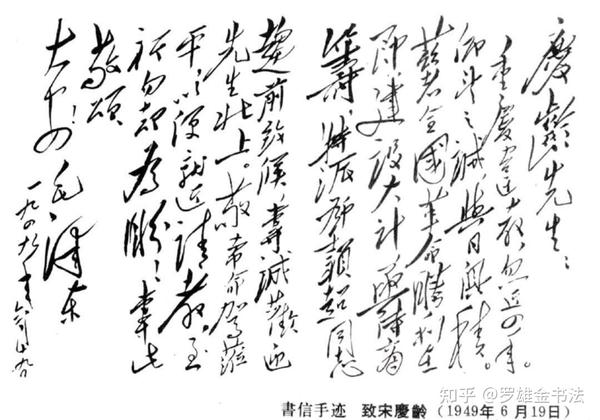 慶齡先生：
重慶違教，忽近四年。
仰望之誠，與日俱積。
茲者全國革命勝利在
即，建設大計，亟待商
籌，特派鄧穎超同志
趨前致候，專誠歡迎
先生北上。敬希命駕蒞
平，以便就近請教，至
祈勿却為盼！專此
敬頌
大安！ 毛澤东
一九四九年六月十九日
書信手迹　致宋慶齡（1949年6月19日）
知乎 @罗雄金书法